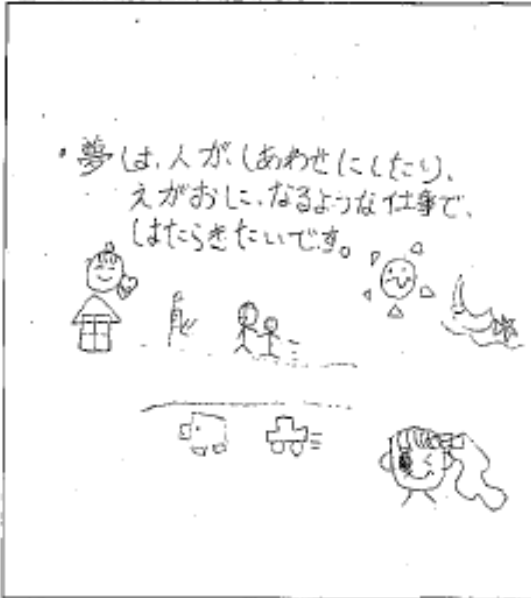 ・夢は、人が、しあわせにしたり、
えがおに、なるような仕事で、
はたらきたいです。